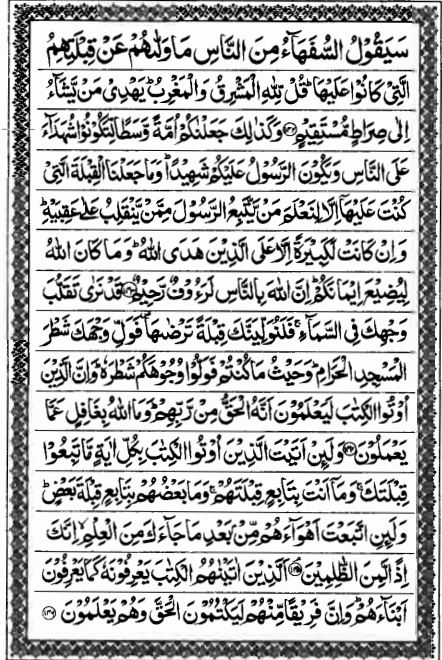 سَيَقُوْلُ السُّفَهَآءُ مِنَ النَّاسِ مَا وَلّٰىهُمْ عَنْ قِبْلَتِهِمُ
الَّتِيْ كَانُوْا عَلَيْهَا ؕ قُلْ لِّلّٰهِ الْمَشْرِقُ وَالْمَغْرِبُ ؕ يَهْدِيْ مَنْ يَّشَآءُ
اِلٰى صِرَاطٍ مُّسْتَقِيْمٍ ﴿۱۴۲﴾ وَكَذٰلِكَ جَعَلْنٰكُمْ اُمَّةً وَّسَطًا لِّتَكُوْنُوْا شُهَدَآءَ
عَلَى النَّاسِ وَيَكُوْنَ الرَّسُوْلُ عَلَيْكُمْ شَهِيْدًا ؕ وَمَا جَعَلْنَا الْقِبْلَةَ الَّتِيْ
كُنْتَ عَلَيْهَآ اِلَّا لِنَعْلَمَ مَنْ يَّتَّبِعُ الرَّسُوْلَ مِمَّنْ يَّنْقَلِبُ عَلٰى عَقِبَيْهِ ؕ
وَاِنْ كَانَتْ لَكَبِيْرَةً اِلَّا عَلَى الَّذِيْنَ هَدَى اللّٰهُ ؕ وَمَا كَانَ اللّٰهُ
لِيُضِيْعَ اِيْمَانَكُمْ ؕ اِنَّ اللّٰهَ بِالنَّاسِ لَرَءُوْفٌ رَّحِيْمٌ ﴿۱۴۳﴾ قَدْ نَرٰى تَقَلُّبَ
وَجْهِكَ فِي السَّمَآءِ ۚ فَلَنُوَلِّيَنَّكَ قِبْلَةً تَرْضٰىهَا ۪ فَوَلِّ وَجْهَكَ شَطْرَ
الْمَسْجِدِ الْحَرَامِ ؕ وَحَيْثُ مَا كُنْتُمْ فَوَلُّوْا وُجُوْهَكُمْ شَطْرَهٗ ؕ وَاِنَّ الَّذِيْنَ
اُوْتُوا الْكِتٰبَ لَيَعْلَمُوْنَ اَنَّهُ الْحَقُّ مِنْ رَّبِّهِمْ ؕ وَمَا اللّٰهُ بِغَافِلٍ عَمَّا
يَعْمَلُوْنَ ﴿۱۴۴﴾ وَلَئِنْ اَتَيْتَ الَّذِيْنَ اُوْتُوا الْكِتٰبَ بِكُلِّ اٰيَةٍ مَّا تَبِعُوْا
قِبْلَتَكَ ۚ وَمَآ اَنْتَ بِتَابِعٍ قِبْلَتَهُمْ ۚ وَمَا بَعْضُهُمْ بِتَابِعٍ قِبْلَةَ بَعْضٍ ؕ
وَلَئِنِ اتَّبَعْتَ اَهْوَآءَهُمْ مِّنْۢ بَعْدِ مَا جَآءَكَ مِنَ الْعِلْمِ ۙ اِنَّكَ
اِذًا لَّمِنَ الظّٰلِمِيْنَ ﴿۱۴۵﴾ اَلَّذِيْنَ اٰتَيْنٰهُمُ الْكِتٰبَ يَعْرِفُوْنَهٗ كَمَا يَعْرِفُوْنَ
اَبْنَآءَهُمْ ؕ وَاِنَّ فَرِيْقًا مِّنْهُمْ لَيَكْتُمُوْنَ الْحَقَّ وَهُمْ يَعْلَمُوْنَ ﴿۱۴۶﴾